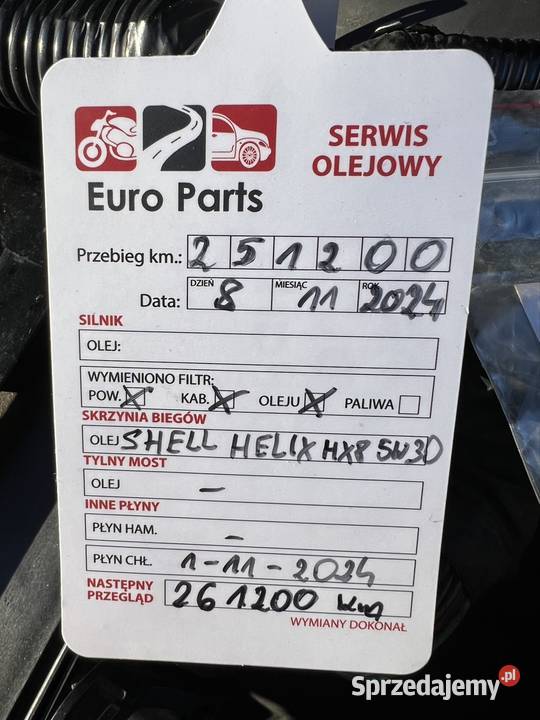 SERWIS
OLEJOWY
Euro Parts
Przebieg km.: 2 5 1 2 0 0
Data: DZIEŃ 8 MIESIĄC 11 ROK 2024
SILNIK
OLEJ:
WYMIENIONO FILTR:
POW. X KAB. X OLEJU X PALIWA
SKRZYNIA BIEGÓW
OLEJ SHELL HELIX HX8 5W30
TYLNY MOST
OLEJ –
INNE PŁYNY
PŁYN HAM. –
PŁYN CHŁ. 1-11-2024
NASTĘPNY
PRZEGLĄD 261200 km
WYMIANY DOKONAŁ
Sprzedajemy.pl